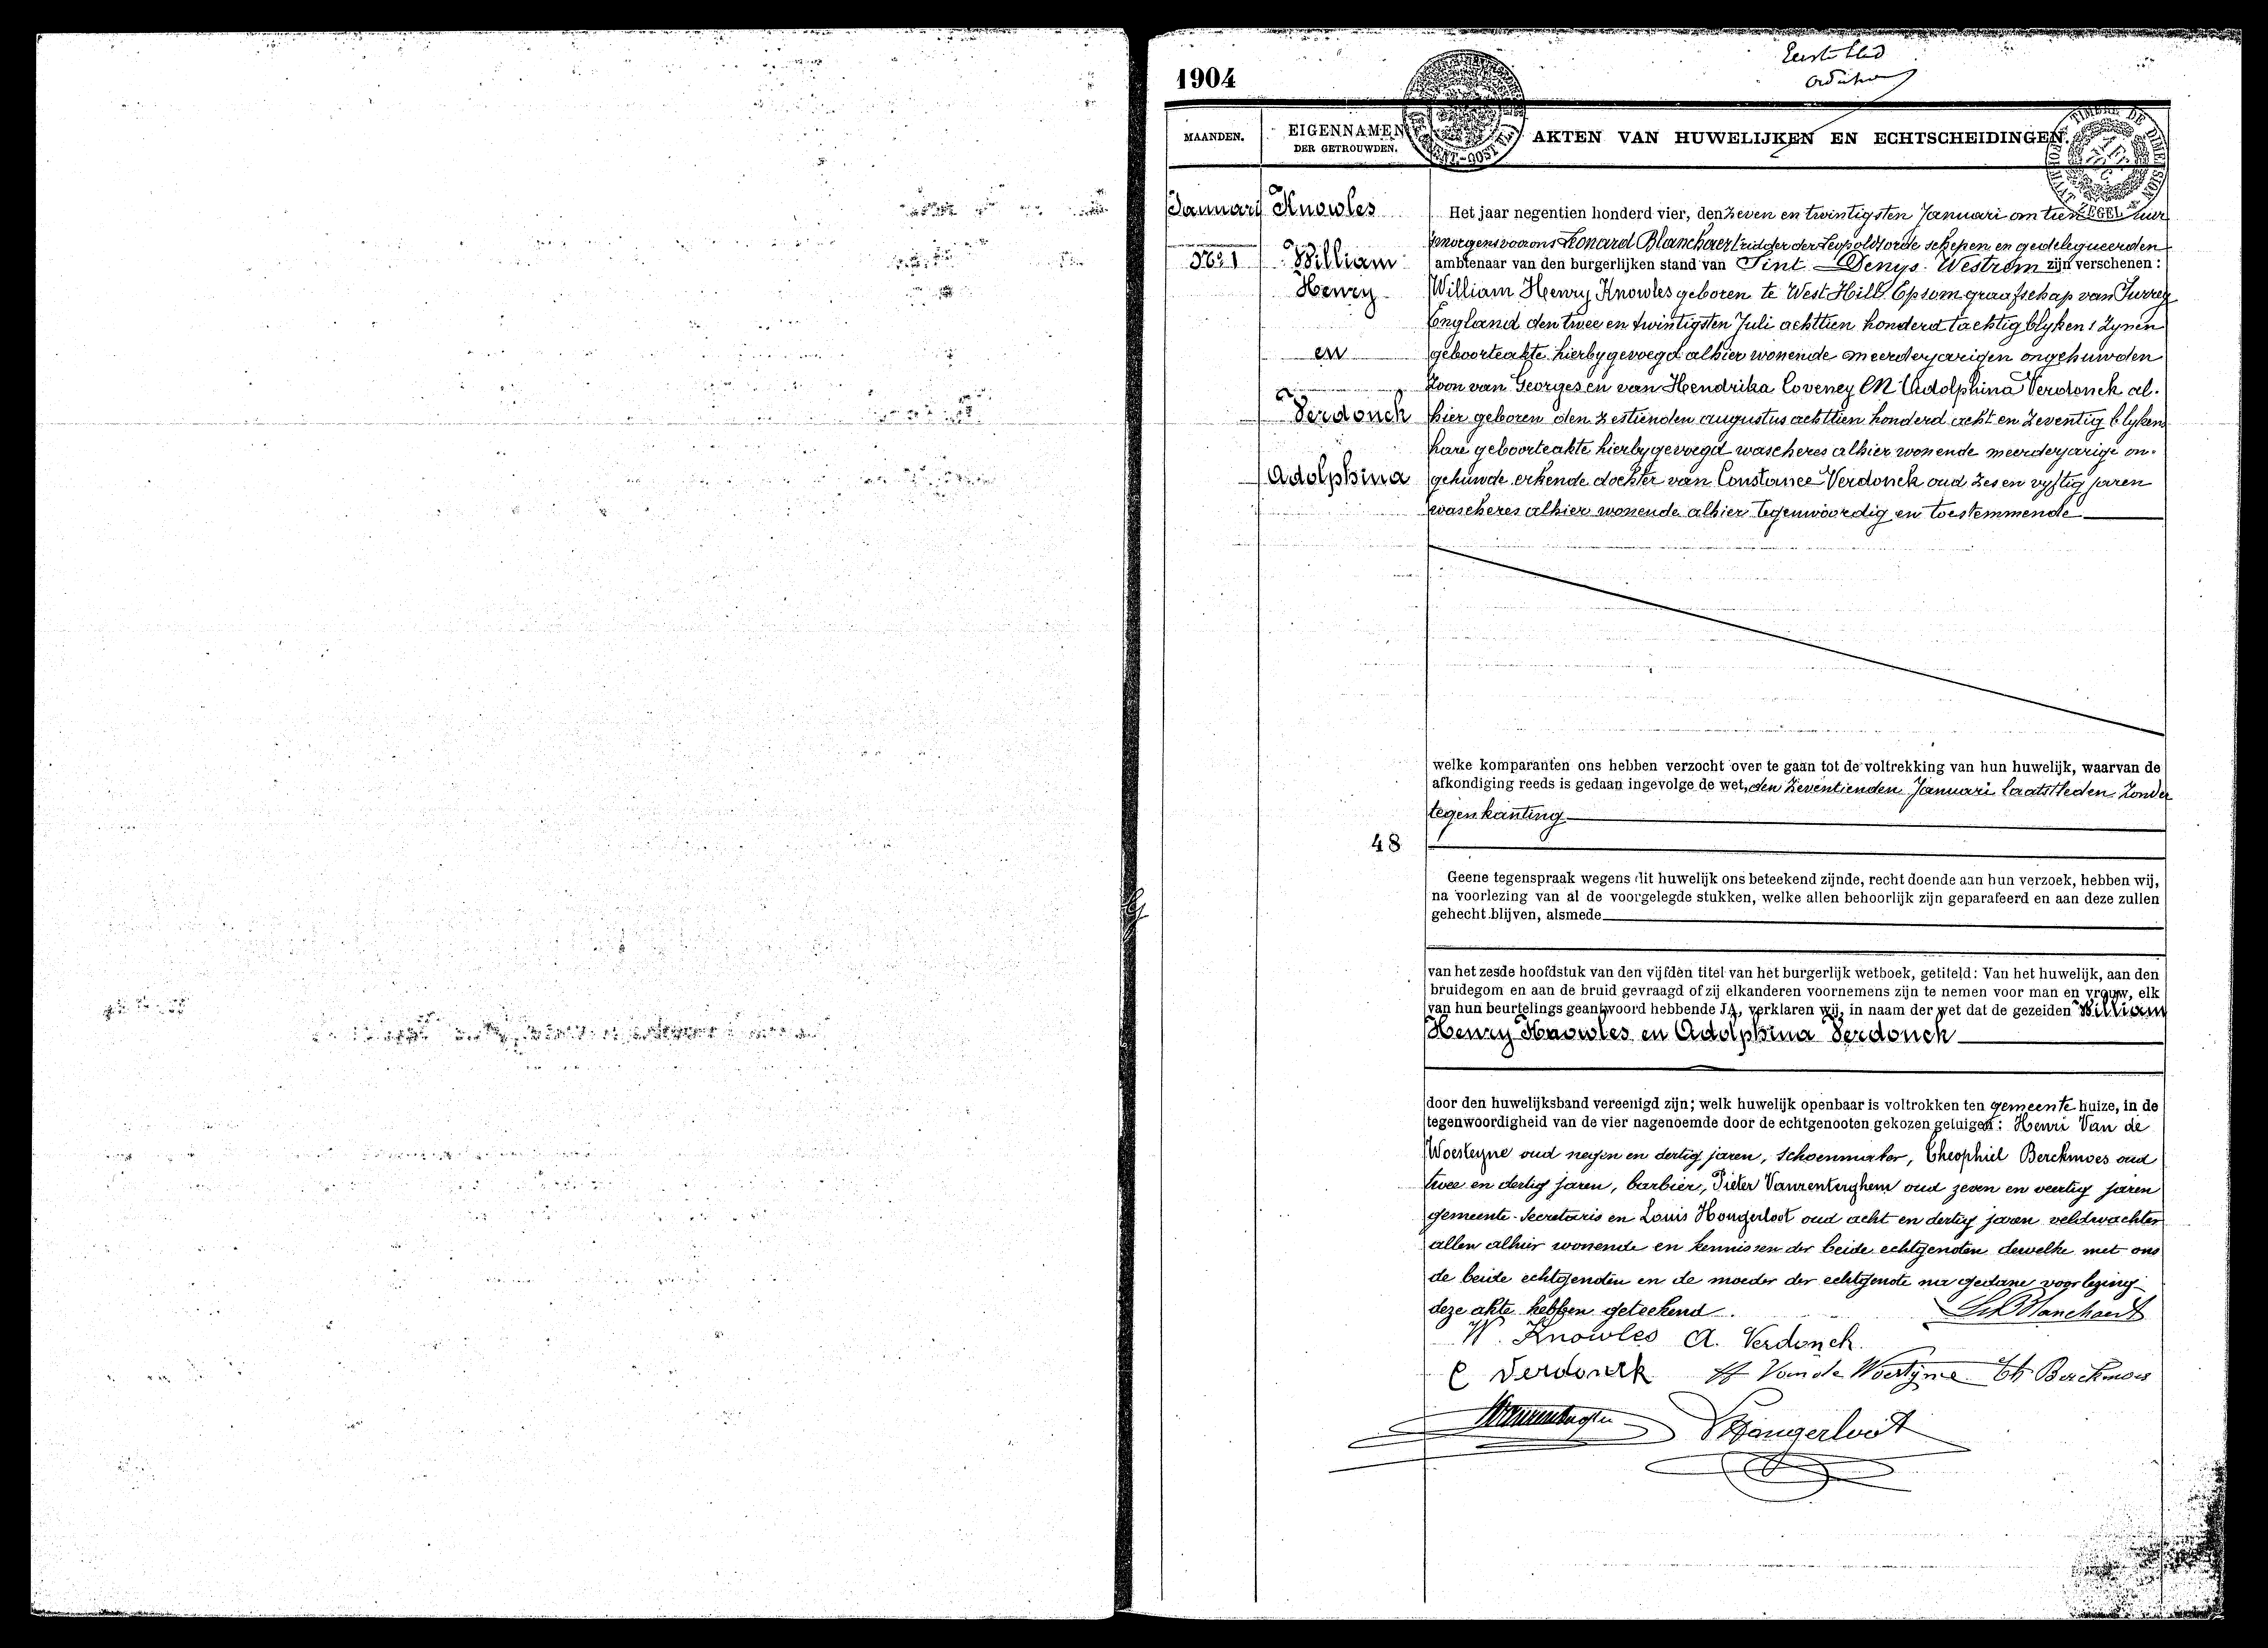 Eerste blad
1904
MAANDEN.
EIGENNAMEN
DER GETROUWDEN.
AKTEN VAN HUWELIJKEN EN ECHTSCHEIDINGEN.
Januari
No 1
Knowles
William
Henry
en
Verdonck
Adolphina
Het jaar negentien honderd vier, den zeven en twintigsten Januari om tien uur
smorgens voor ons Leonard Blanchaert ridder der Leopoldsorde schepen en gedelegueerden
ambtenaar van den burgerlijken stand van Sint Denys-Westrem zijn verschenen:
William Henry Knowles geboren te West Hill Epsom graafschap van Surrey
England den twee en twintigsten Juli achttien honderd tachtig blykens zynen
geboorteakte hierbygevoegd alhier wonende meerderjarigen ongehuwden
zoon van Georges en van Hendrika Coveney EN Adolphina Verdonck al.
hier geboren den zestienden augustus achttien honderd acht en zeventig blykens
hare geboorteakte hierbygevoegd wascheres alhier wonende meerderjarige on-
gehuwde erkende dochter van Constance Verdonck oud zes en vyftig jaren
wascheres alhier wonende alhier tegenwoordig en toestemmende
welke komparanten ons hebben verzocht over te gaan tot de voltrekking van hun huwelijk, waarvan de
afkondiging reeds is gedaan ingevolge de wet, den zeventienden Januari laatstleden zonder
tegenkanting
48
Geene tegenspraak wegens dit huwelijk ons beteekend zijnde, recht doende aan hun verzoek, hebben wij,
na voorlezing van al de voorgelegde stukken, welke allen behoorlijk zijn geparafeerd en aan deze zullen
gehecht blijven, alsmede
van het zesde hoofdstuk van den vijfden titel van het burgerlijk wetboek, getiteld: Van het huwelijk, aan den
bruidegom en aan de bruid gevraagd of zij elkanderen voornemens zijn te nemen voor man en vrouw, elk
van hun beurtelings geantwoord hebbende JA, verklaren wij, in naam der wet dat de gezeiden William
Henry Knowles en Adolphina Verdonck
door den huwelijksband vereenigd zijn; welk huwelijk openbaar is voltrokken ten gemeente huize, in de
tegenwoordigheid van de vier nagenoemde door de echtgenooten gekozen getuigen: Henri Van de
Woesteyne oud negen en dertig jaren, schoenmaker, Theophiel Berckmoes oud
twee en dertig jaren, barbier, Pieter Vanrenterghem oud zeven en veertig jaren
gemeente-secretaris en Louis Hongerloot oud acht en dertig jaren veldwachter
allen alhier wonende en kennissen der beide echtgenoten dewelke met ons
de beide echtgenoten en de moeder der echtgenote na gedane voorlezing
deze akte hebben geteekend.
L. Blanchaert
W. Knowles A. Verdonck.
C Verdonck H Van de Woestyne Th Berckmoes
L Hongerloot